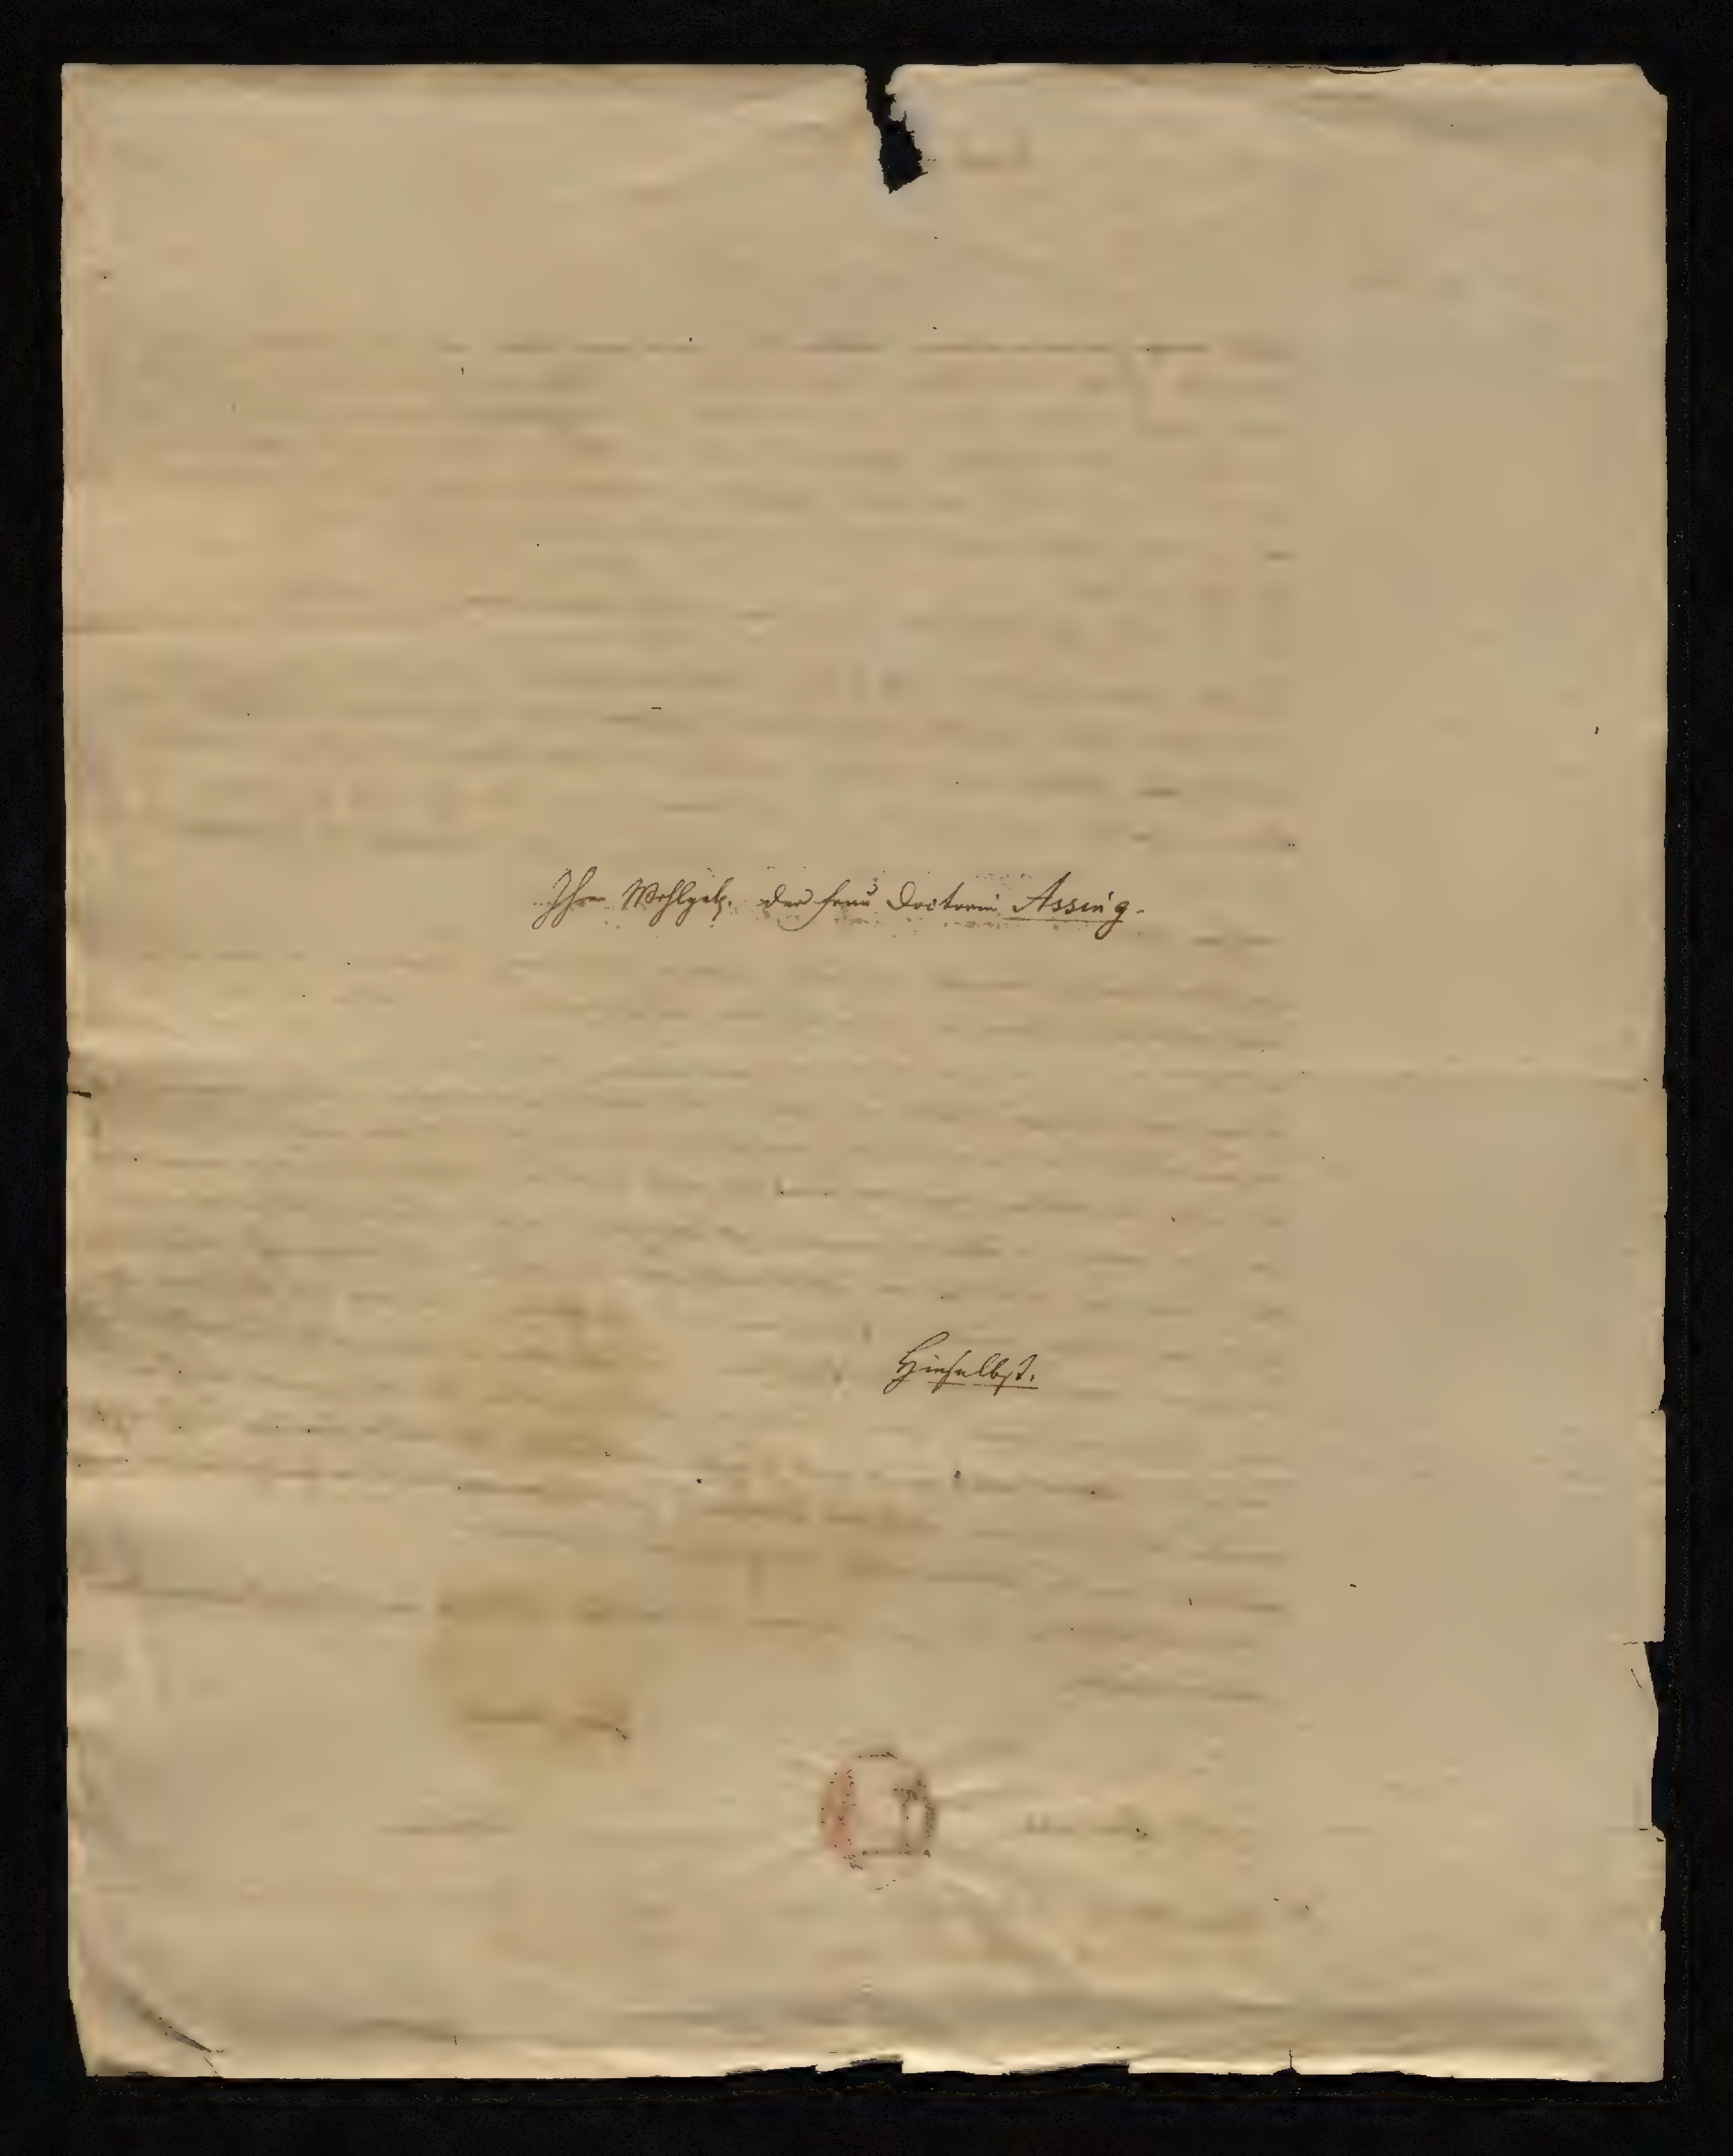 Ihro Wohlgeb. der Frau Doctorin Assing.
Hieselbst.